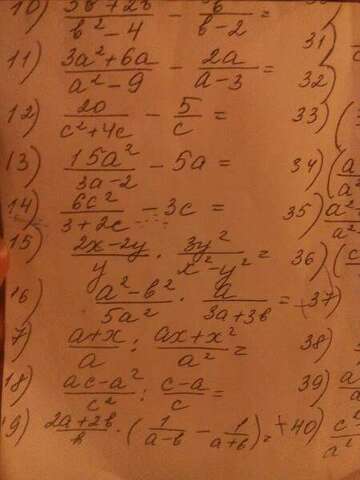 10) (3b+2b)/(b²-4) - b/(b-2) =
11) (3a²+6a)/(a²-9) - 2a/(a-3) =
12) 20/(c²+4c) - 5/c =
13) 15a²/(3a-2) - 5a =
14) 6c²/(3+2c) - 3c =
15) (2x-2y)/y · 3y²/(x²-y²) =
16) (a²-b²)/5a² · a/(3a+3b) =
7) (a+x)/a : (ax+x²)/a² =
18) (ac-a²)/c² : (c-a)/c =
19) (2a+2b)/b · (1/(a-b) - 1/(a+b)) =
31)
32)
33) (
34) (a/a
35) a²-/a²
36) (c
37)
38)
39) a²/a
+40) c²/a²